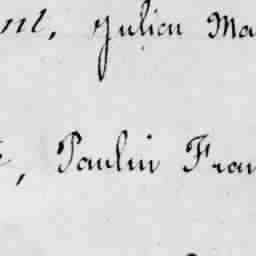 Julien Ma
Paulin Fran